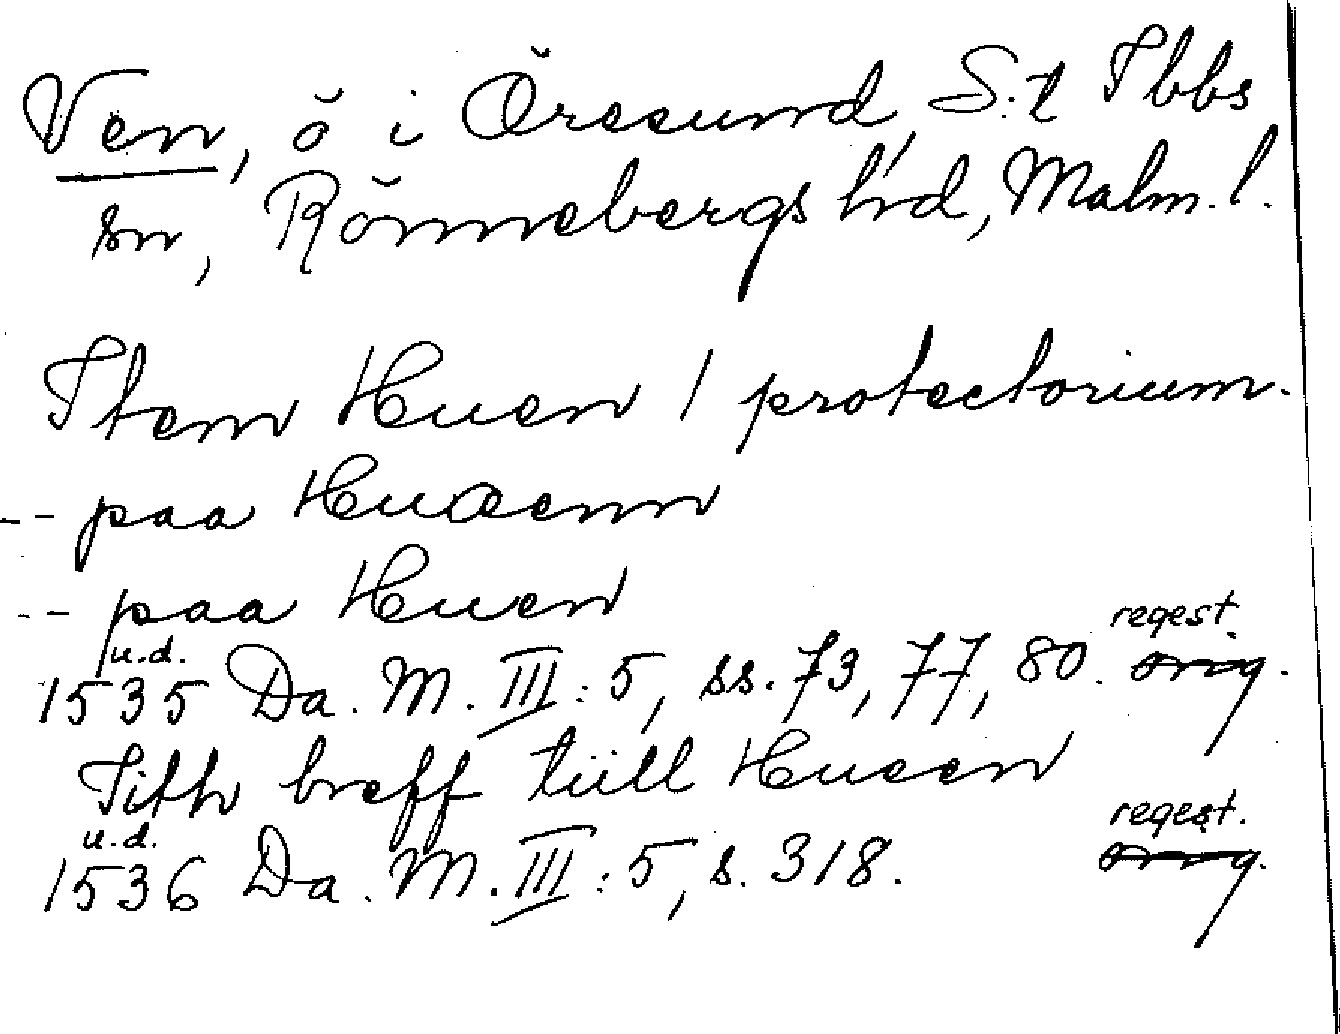 Ven, ö i Öresund, S:t Ibbs
sn, Rönnebergs hd, Malm. l.
Item Huen 1 protectorium.
-- paa Huæenn
-- paa Huen
u.d. regest.
1535 Da. M. III: 5, ss. 73, 77, 80. orig.
Jith breff tiill Hueen
u.d. regest.
1536 Da. M. III: 5, s. 318. orig.